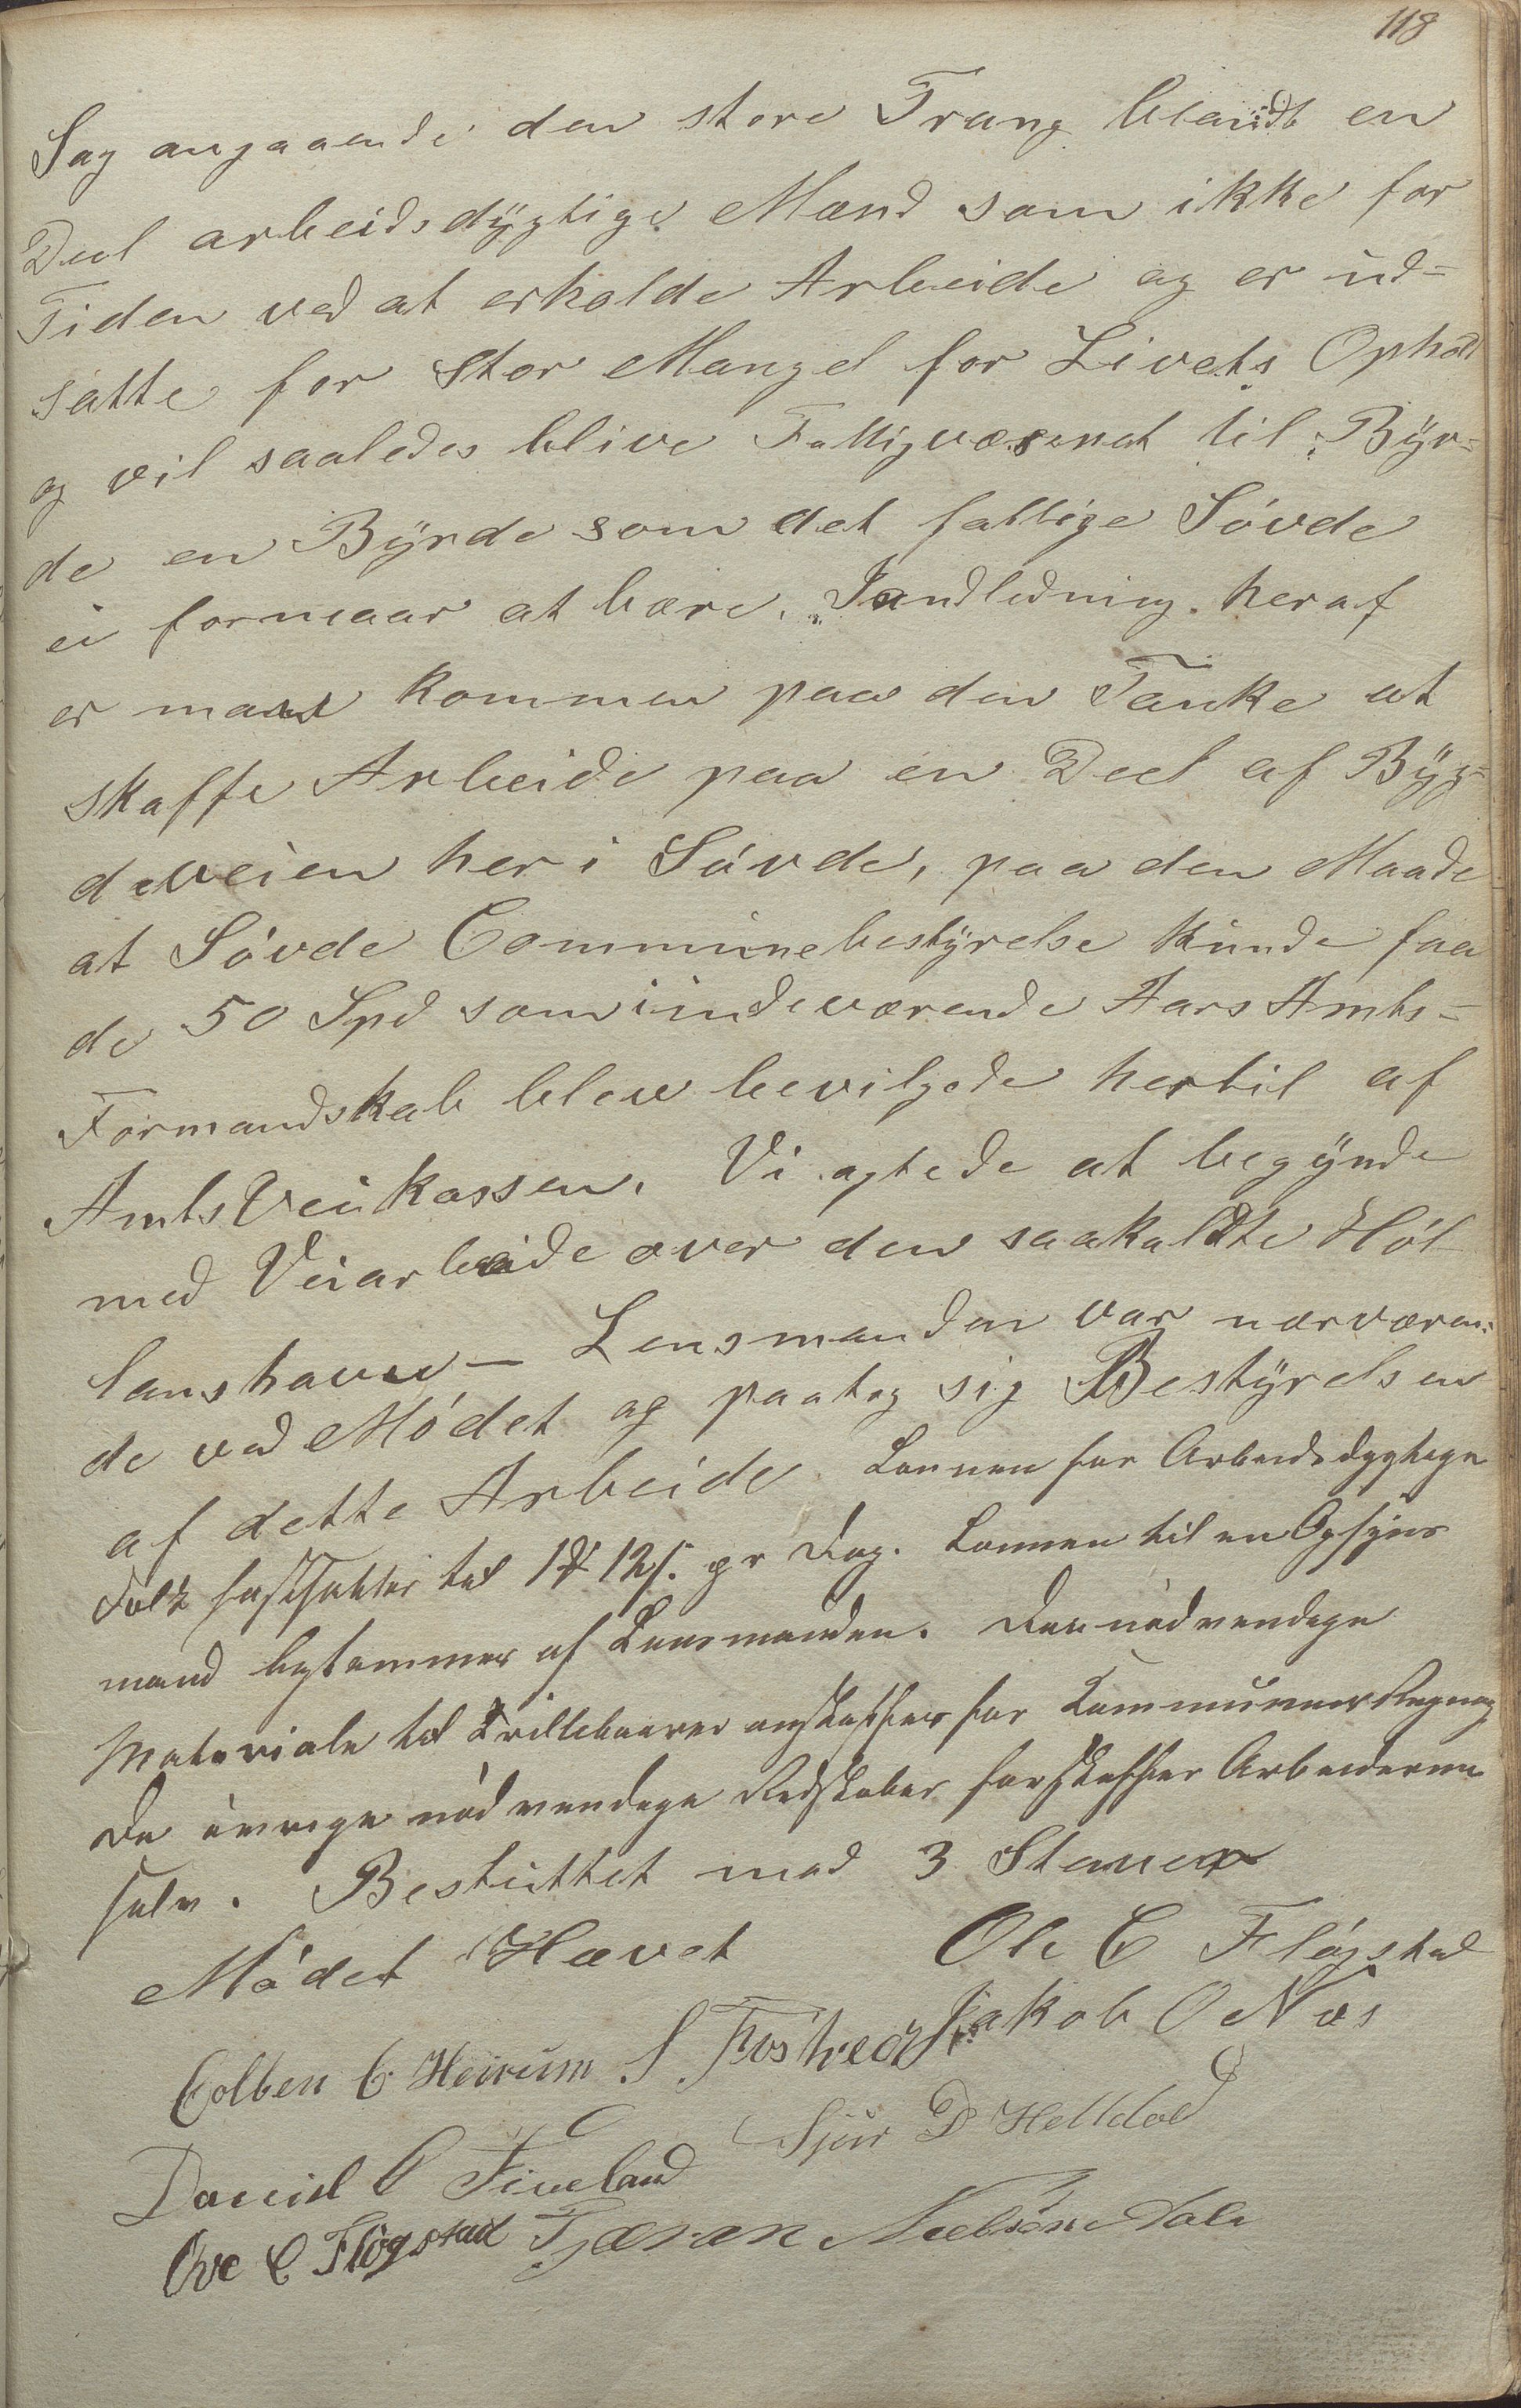 118
Sag angaaende den store Trang blandt en
Deel arbeidsdygtige Mænd som ikke for
Tiden ved at erholde Arbeide og er ud-
satte for stor Mangel for Livets Ophold
og vil saaledes blive Fattigvæsenet til Byr-
de en Byrde som det fattige Søvde
ei formaar at bære. I andledning heraf
er man kommen paa den Tanke at
skaffe Arbeide paa en Deel af Byg-
deveien her i Søvde, paa den Maade
at Søvde Communebestyrelse kunde faa
de 50 Spd som i indeværende Aars Amts-
Formandskab blev bevilgede hertil af
Amts Veikassen. Vi agtede at begynde
med Veiarbeide over den saakaldte Høl
lanshaven — Lensmanden var nærværen-
de ved Mødet og paatog sig Bestyrelsen
af dette Arbeide. Lønnen for Arbeidsdygtige
Folk fastsættes til 1 12 s. pr Dag. Lønnen til en Opsyns
mand bestemmes af Lensmanden. Den nødvendige
Materiale til Trillebaarer anskaffes for Kommunens Regning
De øvrige nødvendige Redskaber forskaffer Arbeiderne
selv. Besluttet med 3 Stemer
Mødet Hævet Ole C Fløgstad
Colben C. Heirum S. Fostveds Jakob O Næs
Daniel C Fiveland Sjur D Helldal
Ove C Fløgstad Tjæran Neelsøn Dale